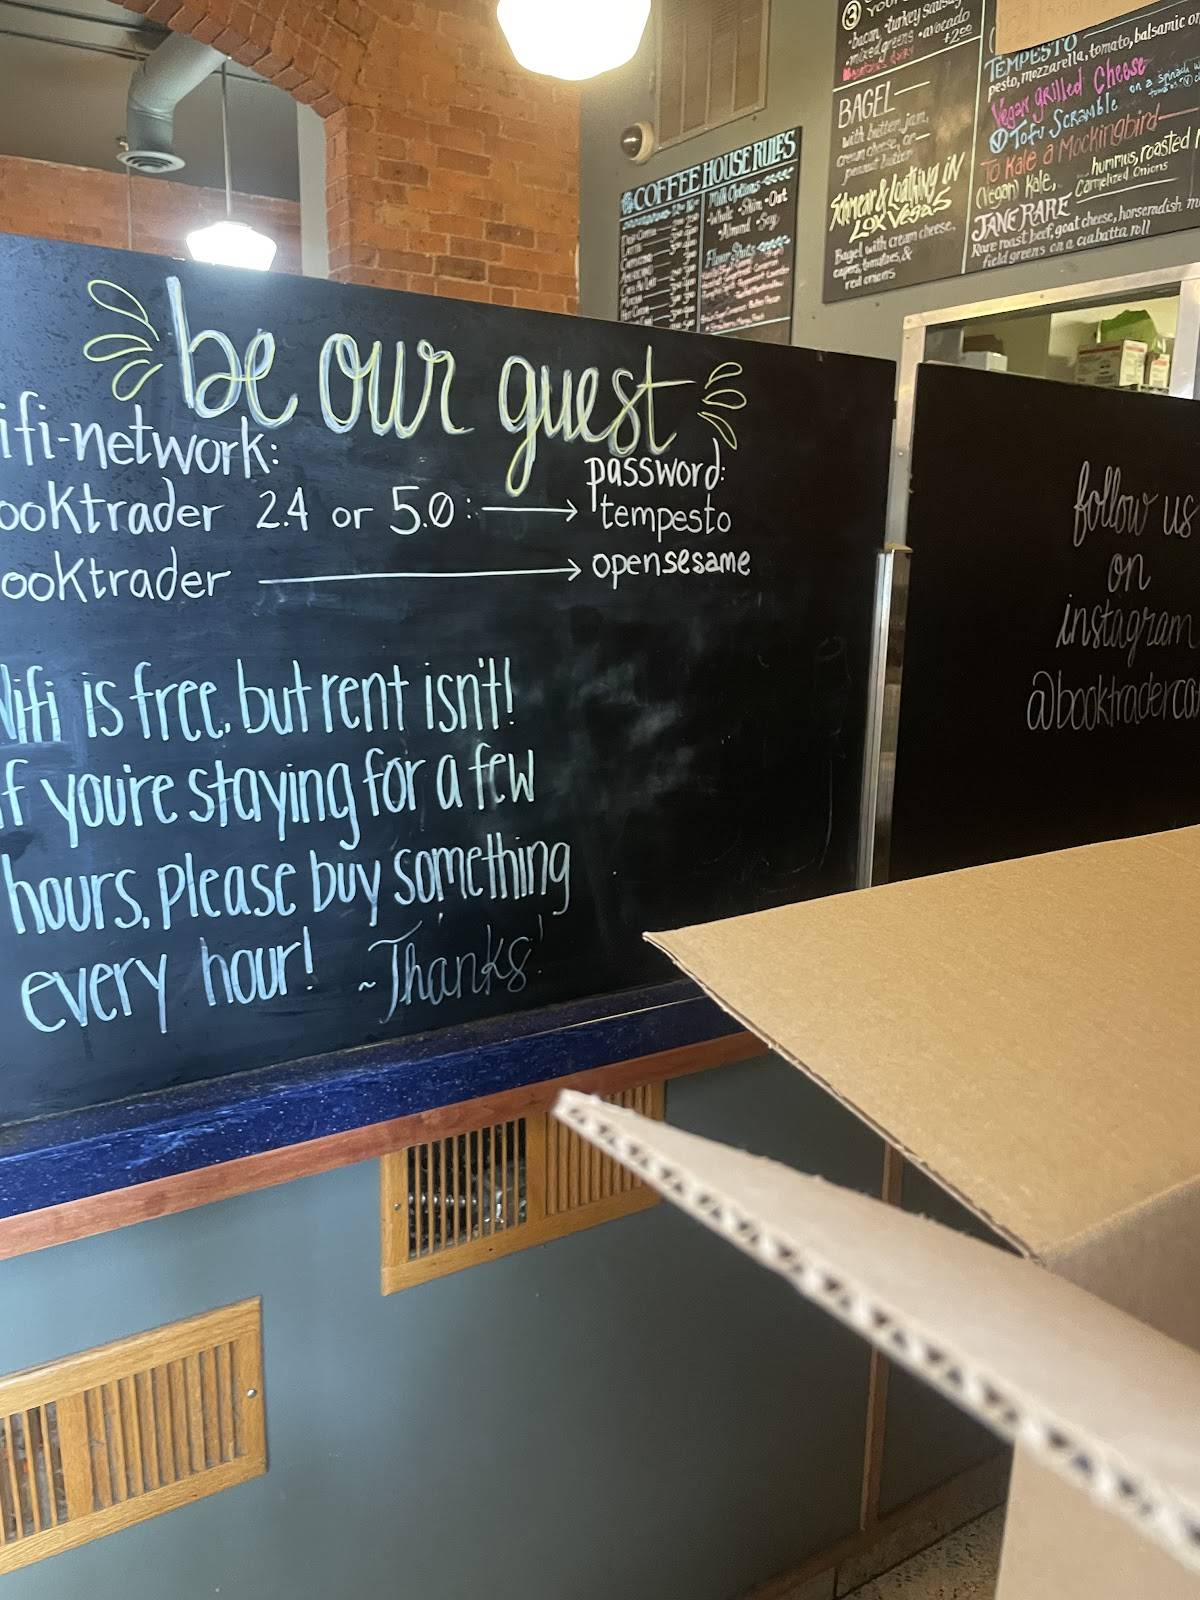 be our guest
ifi-network:
password:
ooktrader 2.4 or 5.0: → tempesto
ooktrader → opensesame
Wifi is free, but rent isn't!
If you're staying for a few
hours, please buy something
every hour! ~Thanks!
follow us
on
instagram
@booktraderca
COFFEE HOUSE RULES
Milk Options
Whole • Skim • Oat
Almond • Soy
③
• bacon • turkey sausag
• mixed greens • avocado
+2.00
BAGEL
with butter, jam,
cream cheese, or
peanut butter
Schmear & Loathing in
Lox Vegas
Bagel with cream cheese,
capers, tomatoes, &
red onions
TEMPESTO
pesto, mozzarella, tomato, balsamic on
Vegan grilled Cheese
Tofu Scramble on a spinach w
To Kale a Mockingbird
(Vegan) Kale, hummus, roasted
Carmelized Onions
JANE RARE
Rare roast beef, goat cheese, horseradish m
field greens on a ciabatta roll